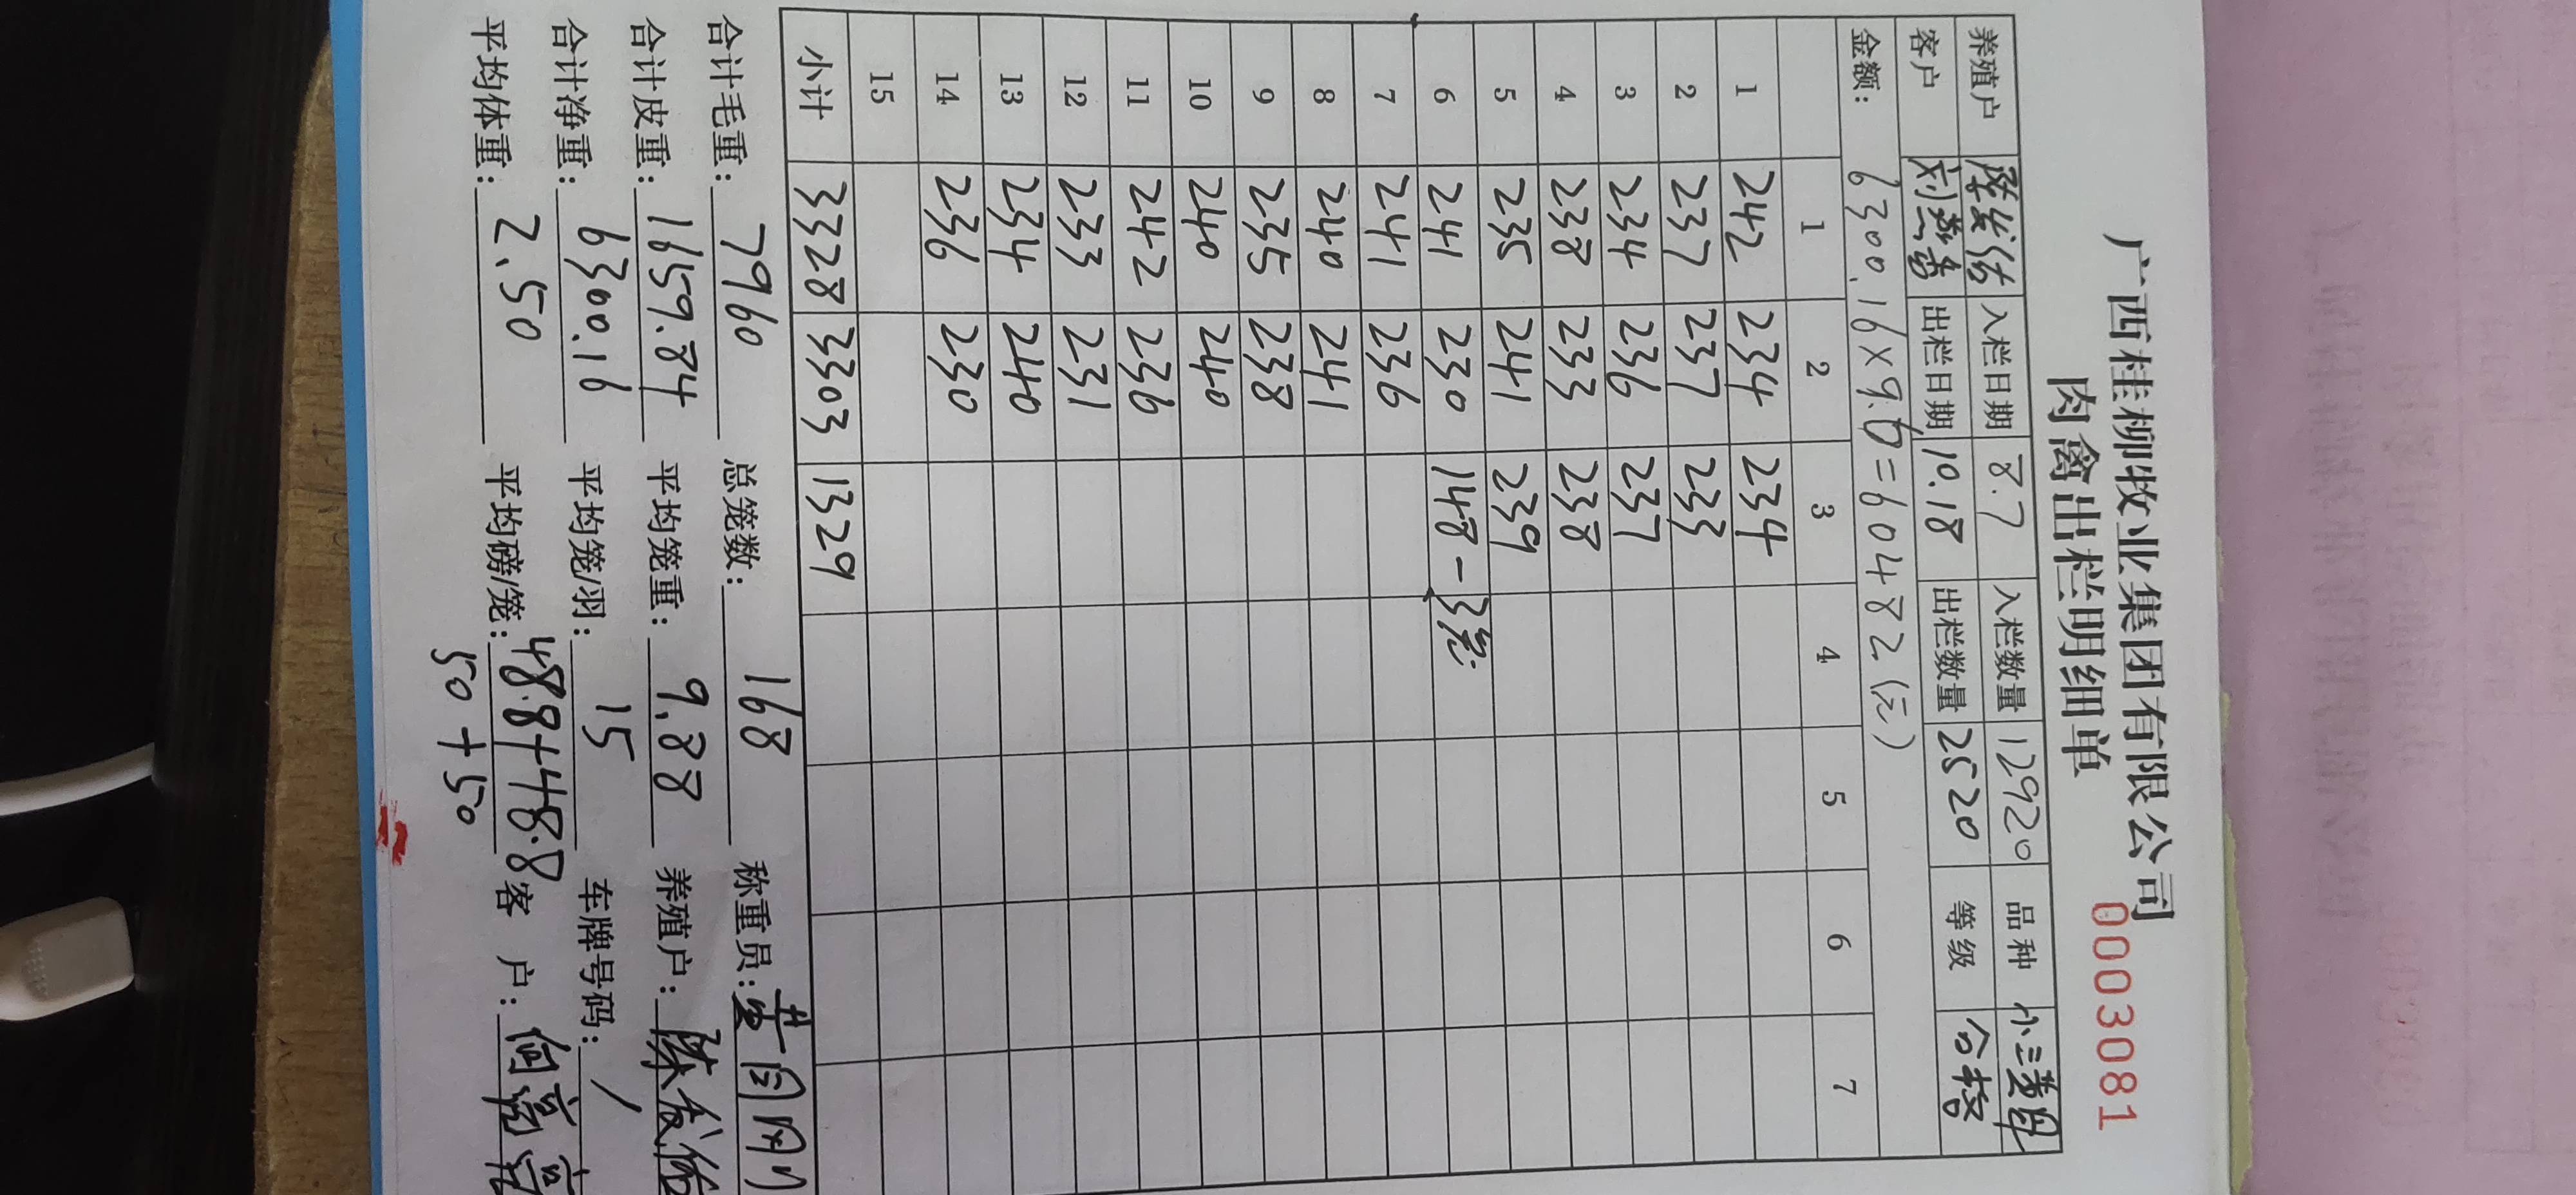 广西桂柳牧业集团有限公司
肉禽出栏明细单 00030081
养殖户 陈发伦 入栏日期 8.7 入栏数量 12920 品种
客户 出栏日期 10.18 出栏数量 2520 等级 合格
金额: 6300.16×9.6=60482(元)
1 2 3 4 5 6 7
1 242 234 234
2 237 237 233
3 234 236 237
4 238 233 238
5 235 241 239
6 241 230 148-3笼
7 241 236
8 240 241
9 235 238
10 240 240
11 242 236
12 233 231
13 234 240
14 236 230
15
小计 3328 3303 1329
合计毛重: 7960 总笼数: 168 称重员:
合计皮重: 1659.84 平均笼重: 9.88 养殖户: 陈发伦
合计净重: 6300.16 平均笼/羽: 15 车牌号码: /
平均体重: 2.50 平均磅/笼: 48.8+48.8 客 户:
50+50